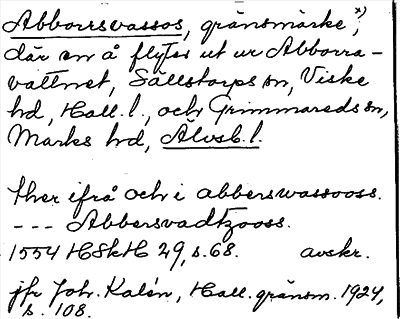 Abborrsvassos, gränsmärke, x)
där en å flyter ut ur Abborra-
vattnet, Sällstorps sn, Viske
hd, Hall. l., och Grimmareds sn,
Marks hd, Älvsb. l.
ther ifrå och i abberswassooss.
--- Abbersvadtzooss.
1554 HSkH 29, s. 68. avskr.
jfr Joh. Kalén, Hall. gränsm. 1924,
s. 108.